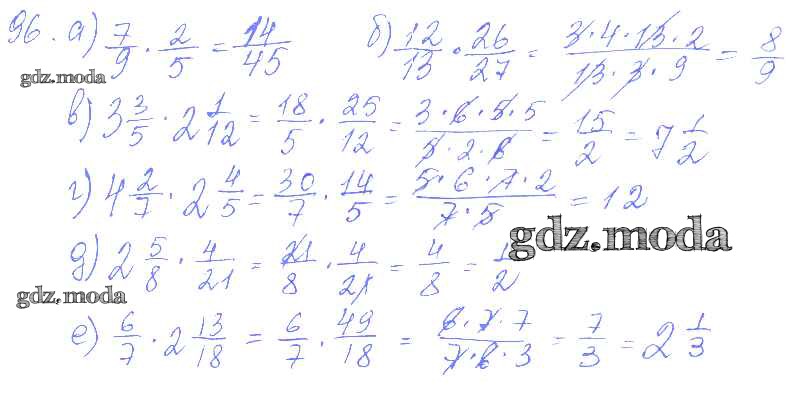 96. а) 7/9 · 2/5 = 14/45 б) 12/13 · 26/27 = 3·4·13·2/13·3·9 = 8/9
gdz.moda
в) 3 3/5 · 2 1/12 = 18/5 · 25/12 = 3·6·5·5/5·2·6 = 15/2 = 7 1/2
г) 4 2/7 · 2 4/5 = 30/7 · 14/5 = 5·6·7·2/7·5 = 12
gdz.moda
д) 2 5/8 · 4/21 = 21/8 · 4/21 = 4/8 = 1/2
gdz.moda
е) 6/7 · 2 13/18 = 6/7 · 49/18 = 6·7·7/7·6·3 = 7/3 = 2 1/3